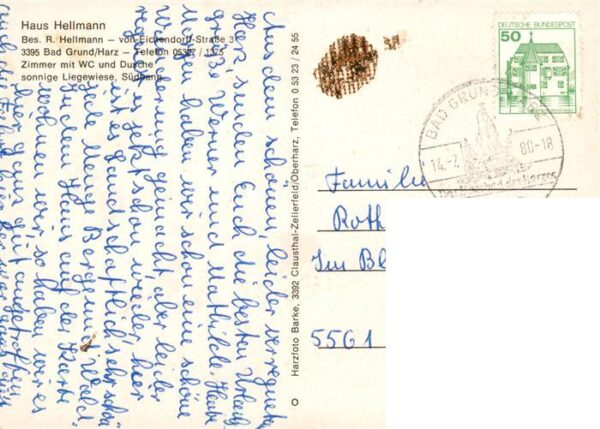 Haus Hellmann
Bes. R. Hellmann — von-Eichendorff-Straße 3
3395 Bad Grund/Harz — Telefon 05327 / 1375
Zimmer mit WC und Dusche
sonnige Liegewiese, Südhang
Aus dem schönen, leider verregneten
Harz, senden Euch die besten Urlaubs
grüße Werner und Mathilde. Heute
Morgen haben wir schon eine schöne
Wanderung gemacht aber leider
regnet es jetzt schon wieder, hier
ist es landschaftlich sehr schön
jede Menge Berge und Wald.
In dem Haus auf der Karte
wohnen wir, so haben wir es
hier ganz gut angetroffen
Harzfoto Barke, 3392 Clausthal-Zellerfeld/Oberharz, Telefon 0 53 23 / 24 55
DEUTSCHE BUNDESPOST
50
BAD GRUND
14.-7.
00-18
Familie
Roth
Im Bl
5561